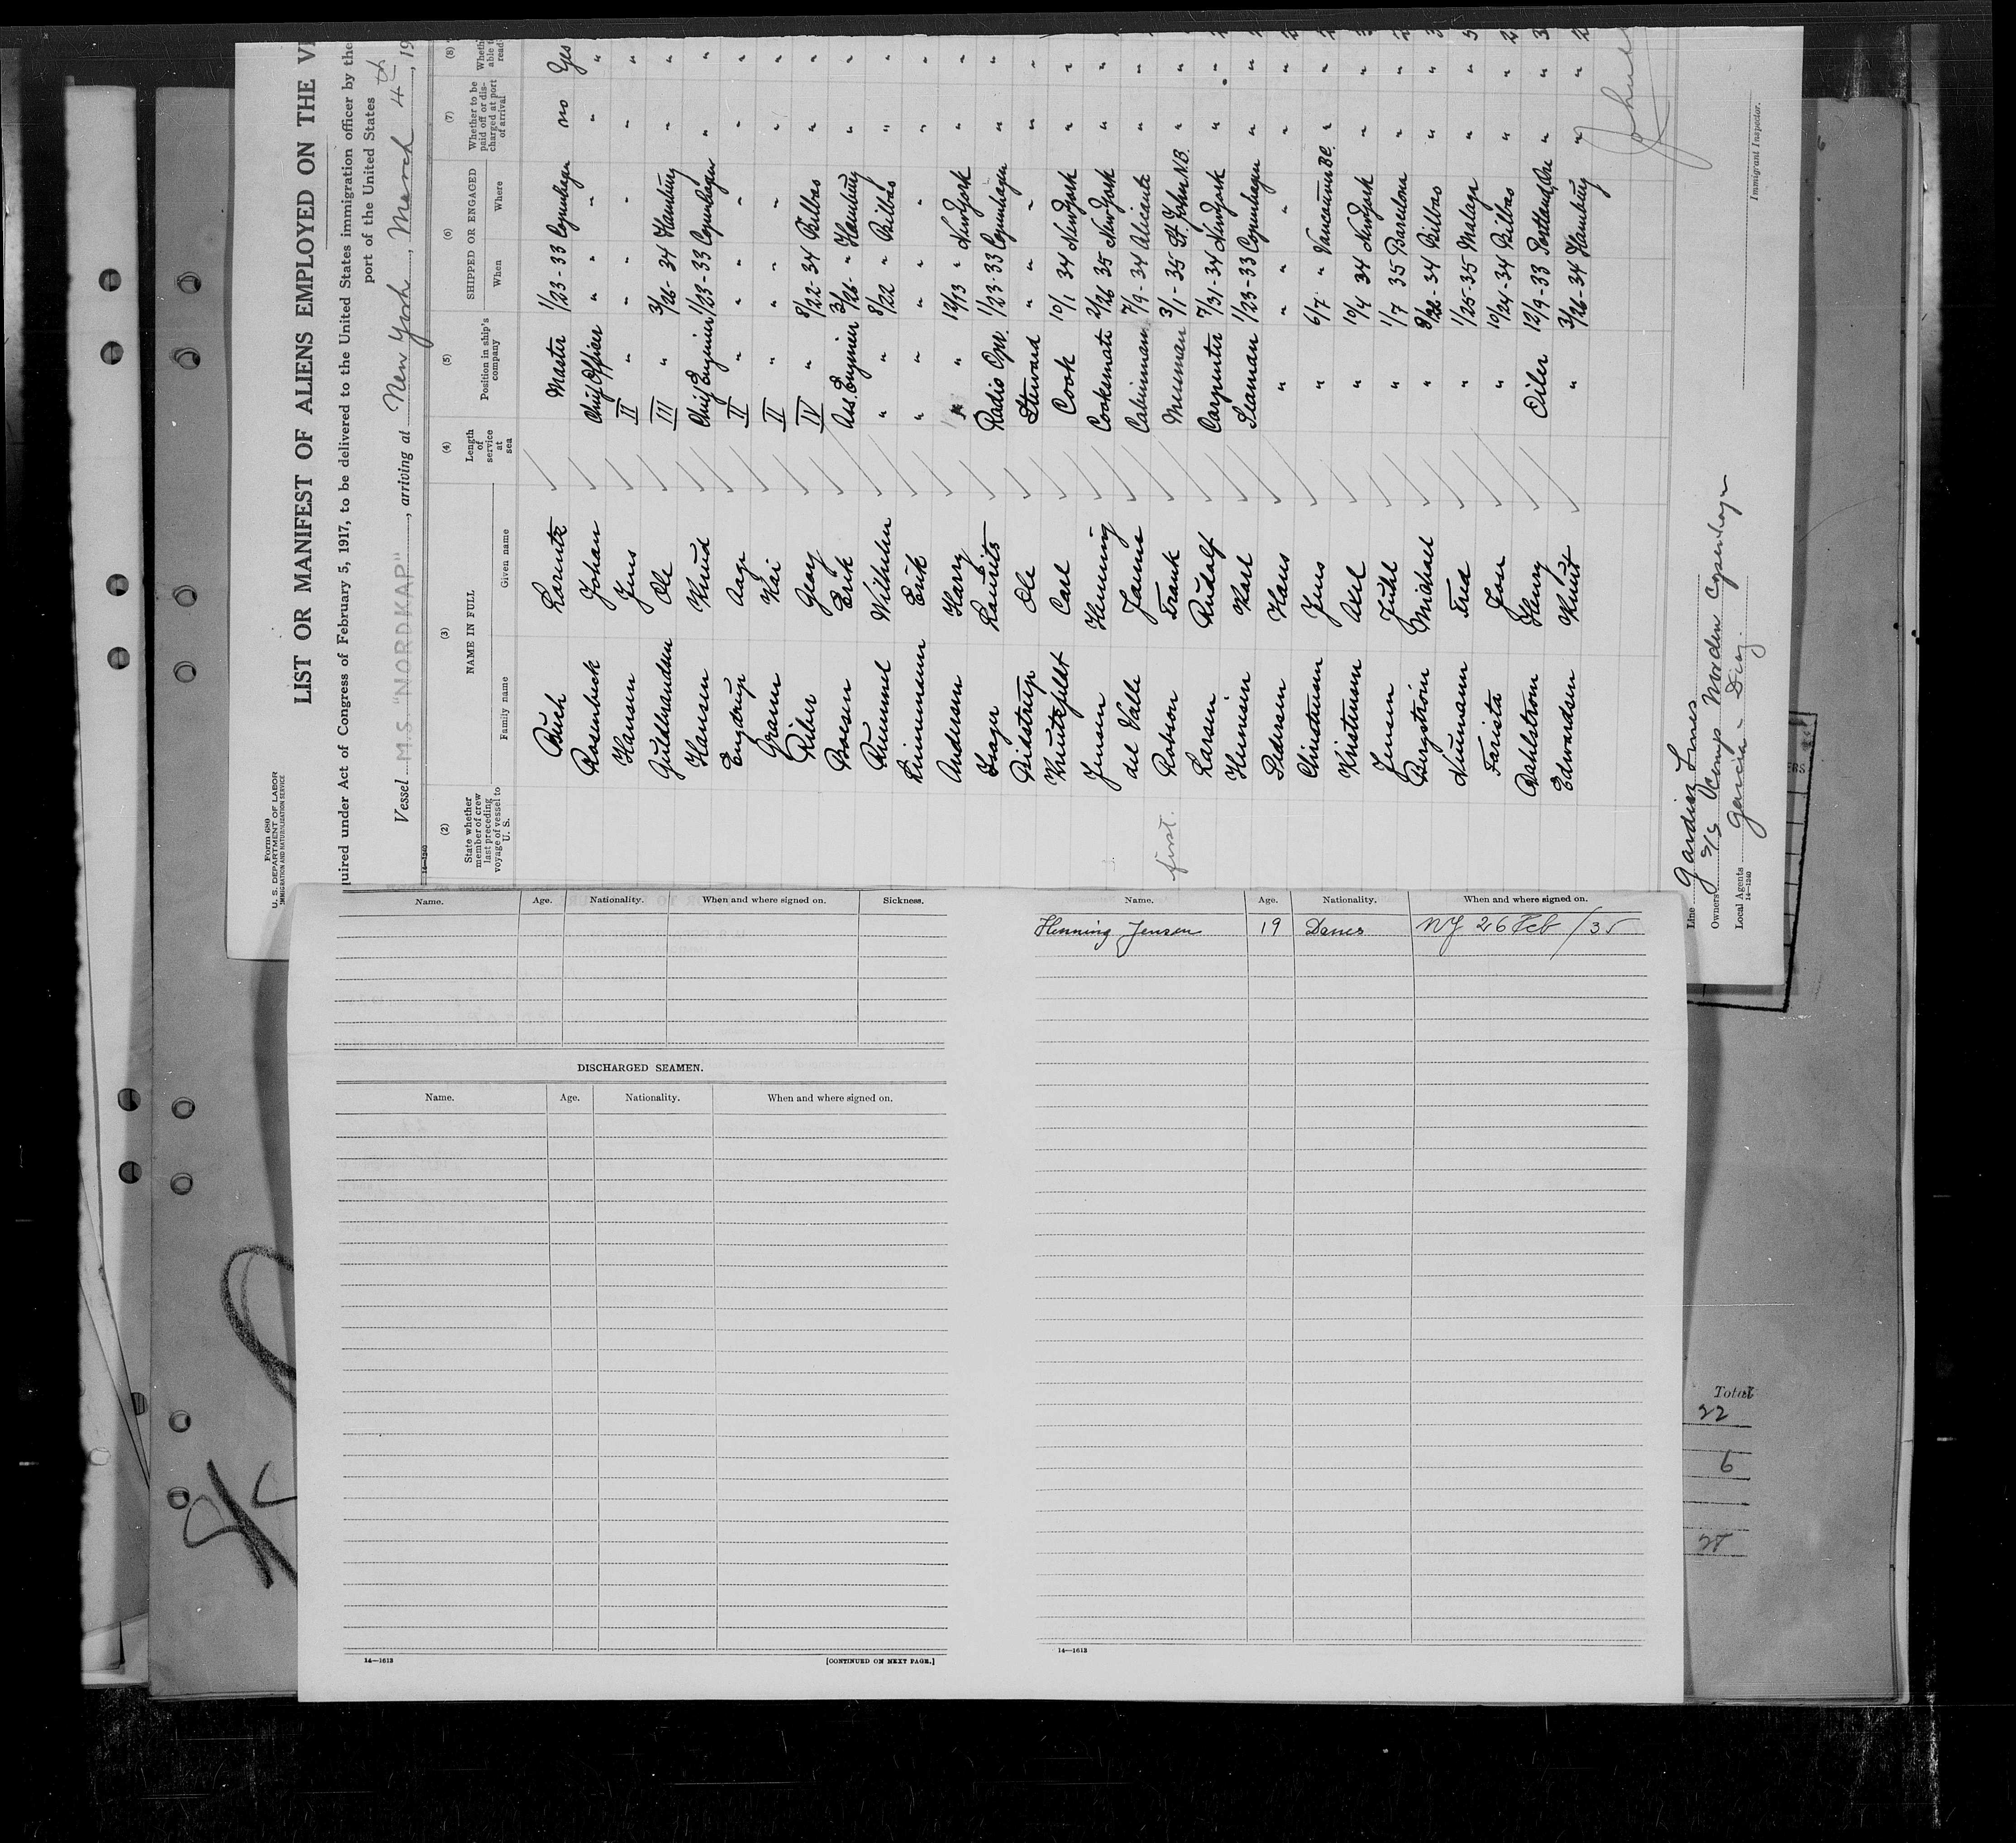 Form 680
U. S. DEPARTMENT OF LABOR
IMMIGRATION AND NATURALIZATION SERVICE
LIST OR MANIFEST OF ALIENS EMPLOYED ON THE
quired under Act of Congress of February 5, 1917, to be delivered to the United States immigration officer by the
port of the United States
Vessel M.S. "NORDKAP", arriving at New York, March 4th, 19
14—1240
(2) (3) (4) (5) (6) (7) (8)
State whether member of crew last preceding voyage of vessel to U. S.
NAME IN FULL
Family name Given name
Length of service at sea
Position in ship's company
SHIPPED OR ENGAGED
When Where
Whether to be paid off or discharged at port of arrival
Buch Lorentz Master 1/23-33 Copenhagen no Yes
Rosenbeck Johan Chief Officer " " " "
Hansen Jens II " " " " "
Guldbrandsen Ole III " 3/26-34 Hamburg " "
Hansen Knud Chief Engineer 1/23-33 Copenhagen " "
Engdrup Aage II " " " " "
Gram Kai II " " " " "
Riber Georg IV " 8/22-34 Bilbao " "
Boesen Erik Ass. Engineer 3/26- " Hamburg " "
Rummel Wilhelm " 8/22 " Bilbao " "
Linnemann Erik " " " " "
Andersen Harry " 12/13 " New York " "
Lauritz Radio Opr. 1/23-33 Copenhagen " "
Bidstrup Ole Steward " " " " "
Carl Cook 10/1 34 New York " "
Jensen Henning Cooksmate 2/26 35 New York " "
del Valle Jaime Cabinman 7/9-34 Alicante " "
first. Robson Frank Messman 3/1-35 St. John N.B. " "
Larsen Rudolf Carpenter 7/31-34 New York " "
Karl Seaman 1/23-33 Copenhagen " "
Pedersen Hans " " " " "
Christensen Jens " 6/7 " Vancouver BC. " "
Kristensen Axel " 10/4 34 New York " "
Jensen Juhl " 1/7 35 Barcelona " "
Bergström Michael " 8/22-34 Bilbao " "
Neumann Fred " 1/25-35 Malaga " "
Farista Jose " 10/24-34 Bilbao " "
Dahlstrom Henry Oiler 12/9-33 Portland, Ore " "
Edwardsen Knut " 3/26-34 Hamburg " "
Immigrant Inspector.
Line Gardiaz Lines
Owners Norden Copenhagen
Local Agents Garcia & Diaz.
14—1240
Name. Age. Nationality. When and where signed on. Sickness.
DISCHARGED SEAMEN.
Name. Age. Nationality. When and where signed on.
14—1613 [CONTINUED ON NEXT PAGE.]
Name. Age. Nationality. When and where signed on.
Henning Jensen 19 Danes NY 26 Feb /35
14—1613
Total
22
6